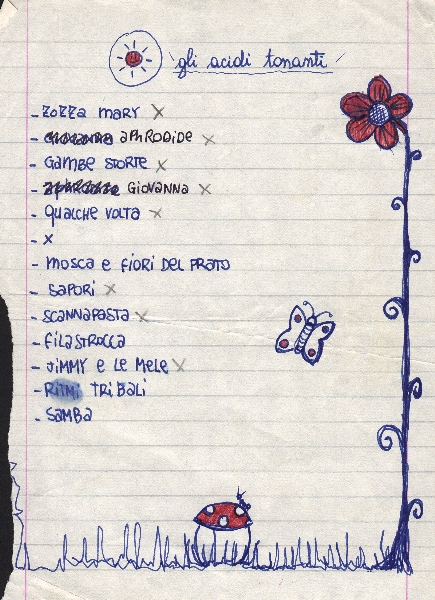 gli acidi tonanti
- ZOZZA MARY X
- APHRODIDE X
- GAMBE STORTE X
- GIOVANNA X
- QUALCHE VOLTA X
- X
- MOSCA E FIORI DEL PRATO
- SAPORI X
- SCANNAPASTA X
- FILASTROCCA
- JIMMY E LE MELE X
- RITMI TRIBALI
- SAMBA